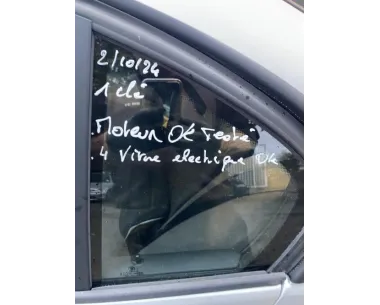 2/10/24
1 clé
. Moteur OK Testé
. 4 Vitre electrique OK